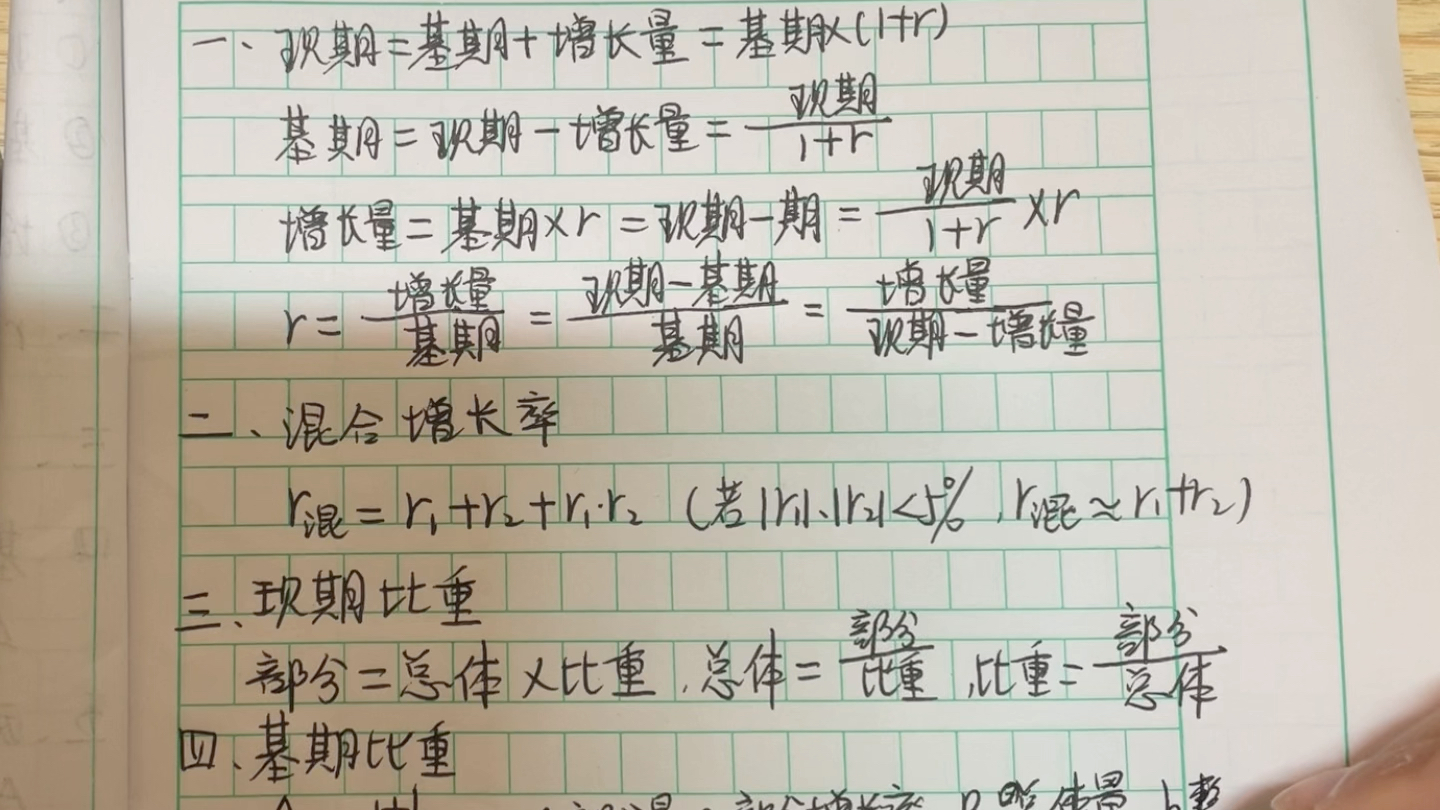 一、现期=基期+增长量=基期×(1+r)
基期=现期-增长量=现期/(1+r)
增长量=基期×r=现期-期=现期/(1+r)×r
r=增长量/基期=(现期-基期)/基期=增长量/(现期-增长量)
二、混合增长率
r混=r₁+r₂+r₁·r₂ (若|r₁|、|r₂|<5%,r混≈r₁+r₂)
三、现期比重
部分=总体×比重,总体=部分/比重,比重=部分/总体
四、基期比重